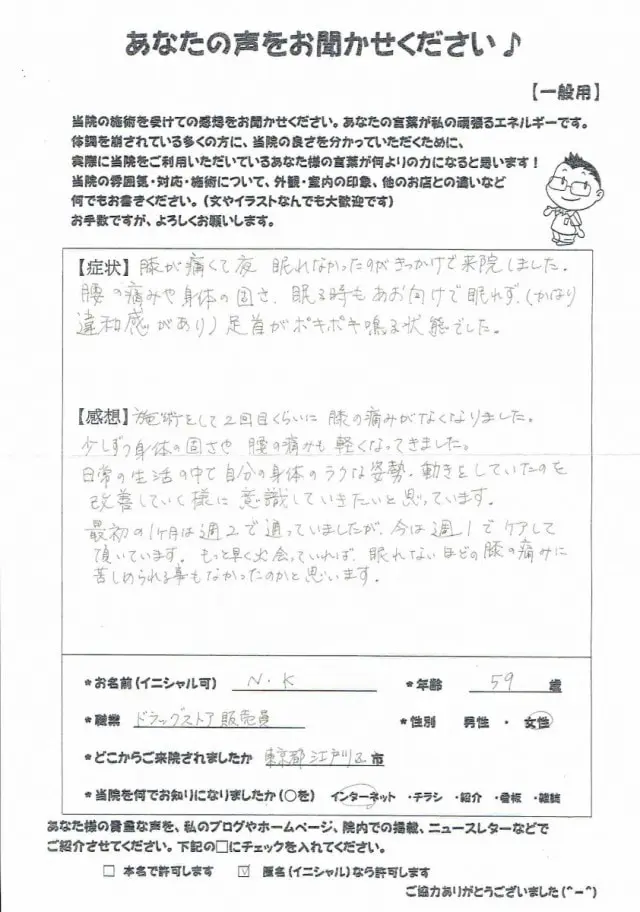 あなたの声をお聞かせください♪
【一般用】
当院の施術を受けての感想をお聞かせください。あなたの言葉が私の頑張るエネルギーです。
体調を崩されている多くの方に、当院の良さを分かっていただくために、
実際に当院をご利用いただいているあなた様の言葉が何よりの力になると思います！
当院の雰囲気・対応・施術について、外観・室内の印象、他のお店との違いなど
何でもお書きください。(文やイラストなんでも大歓迎です)
お手数ですが、よろしくお願いします。
【症状】膝が痛くて夜 眠れなかったのがきっかけで来院しました。
腰の痛みや身体の固さ、眠る時もあお向けで眠れず、(かなり
違和感があり) 足首がポキポキ鳴る状態でした。
【感想】施術をして2回目くらいに 膝の痛みがなくなりました。
少しずつ身体の固さや 腰の痛みも 軽くなってきました。
日常の生活の中で自分の身体のラクな姿勢、動きをしていたのを
改善していく様に 意識していきたいと思っています。
最初の1ヶ月は週2で通っていましたが、今は週1でケアして
頂いています。もっと早く出会っていれば、眠れないほどの膝の痛みに
苦しめられる事もなかったのかと思います。
*お名前(イニシャル可) N・K *年齢 59 歳
*職業 ドラッグストア販売員 *性別 男性 ・ 女性
*どこからご来院されましたか 東京都江戸川区 市
*当院を何でお知りになりましたか(○を) インターネット ・チラシ ・紹介 ・看板 ・雑誌
あなた様の貴重な声を、私のブログやホームページ、院内での掲載、ニュースレターなどで
ご紹介させてください。下記の□にチェックを入れてください。
□ 本名で許可します ☑ 匿名(イニシャル)なら許可します
ご協力ありがとうございました(^-^)